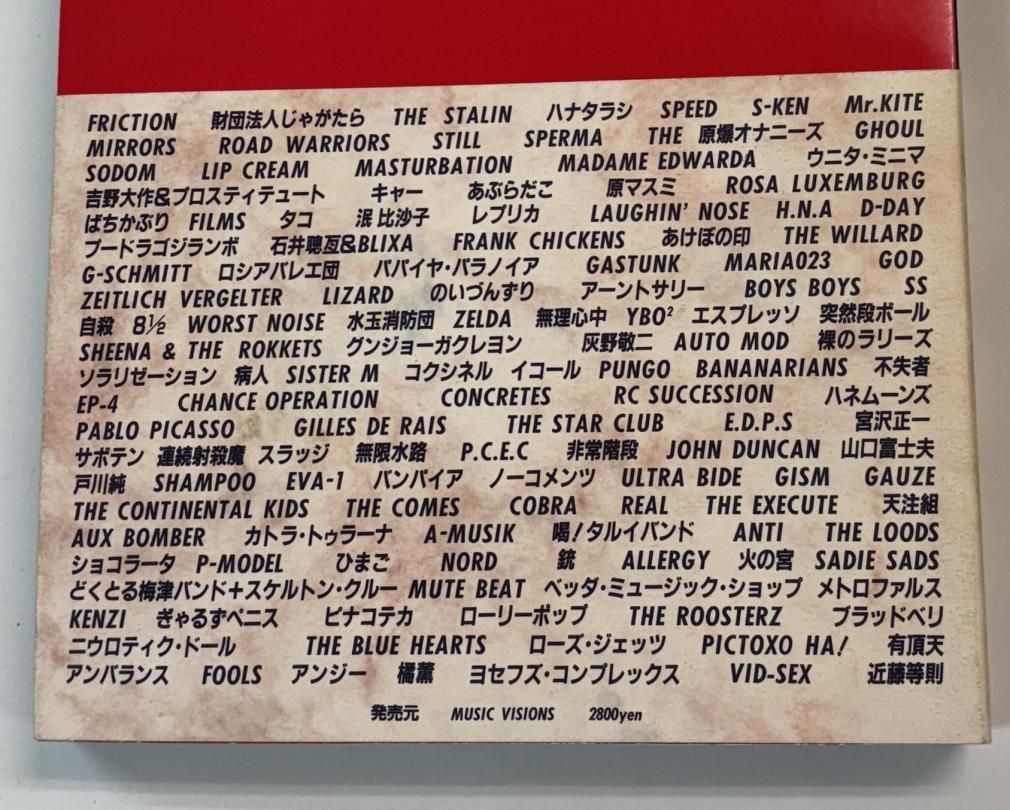 FRICTION 財団法人じゃがたら THE STALIN ハナタラシ SPEED S-KEN Mr.KITE
MIRRORS ROAD WARRIORS STILL SPERMA THE 原爆オナニーズ GHOUL
SODOM LIP CREAM MASTURBATION MADAME EDWARDA ウニタ・ミニマ
吉野大作&プロスティテュート キャー あぶらだこ 原マスミ ROSA LUXEMBURG
ばちかぶり FILMS タコ 泯比沙子 レプリカ LAUGHIN' NOSE H.N.A D-DAY
プードラゴジランボ 石井聰亙&BLIXA FRANK CHICKENS あけぼの印 THE WILLARD
G-SCHMITT ロシアバレエ団 パパイヤ・パラノイア GASTUNK MARIA023 GOD
ZEITLICH VERGELTER LIZARD のいづんずり アーントサリー BOYS BOYS SS
自殺 8½ WORST NOISE 水玉消防団 ZELDA 無理心中 YBO² エスプレッソ 突然段ボール
SHEENA & THE ROKKETS グンジョーガクレヨン 灰野敬二 AUTO MOD 裸のラリーズ
ソラリゼーション 病人 SISTER M コクシネル イコール PUNGO BANANARIANS 不失者
EP-4 CHANCE OPERATION CONCRETES RC SUCCESSION ハネムーンズ
PABLO PICASSO GILLES DE RAIS THE STAR CLUB E.D.P.S 宮沢正一
サボテン 連続射殺魔 スラッジ 無限水路 P.C.E.C 非常階段 JOHN DUNCAN 山口富士夫
戸川純 SHAMPOO EVA-1 バンパイア ノーコメンツ ULTRA BIDE GISM GAUZE
THE CONTINENTAL KIDS THE COMES COBRA REAL THE EXECUTE 天注組
AUX BOMBER カトラ・トゥラーナ A-MUSIK 喝!タルイバンド ANTI THE LOODS
ショコラータ P-MODEL ひまご NORD 銃 ALLERGY 火の宮 SADIE SADS
どくとる梅津バンド+スケルトン・クルー MUTE BEAT ベッダ・ミュージック・ショップ メトロファルス
KENZI ぎゃるずペニス ピナコテカ ローリーポップ THE ROOSTERZ ブラッドベリ
ニウロティク・ドール THE BLUE HEARTS ローズ・ジェッツ PICTOXO HA! 有頂天
アンバランス FOOLS アンジー 橘薫 ヨセフズ・コンプレックス VID-SEX 近藤等則
発売元 MUSIC VISIONS 2800yen